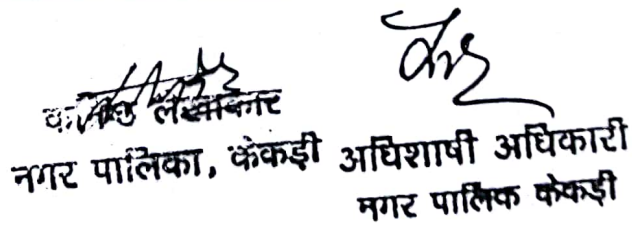 कनिष्ठ लेखाकार
नगर पालिका, केकड़ी
अधिशाषी अधिकारी
नगर पालिक केकड़ी